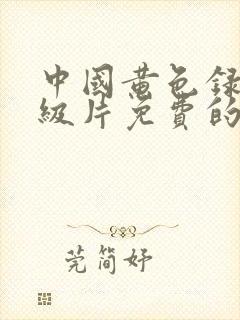 中國黄色録
級片免費的
莞简妤